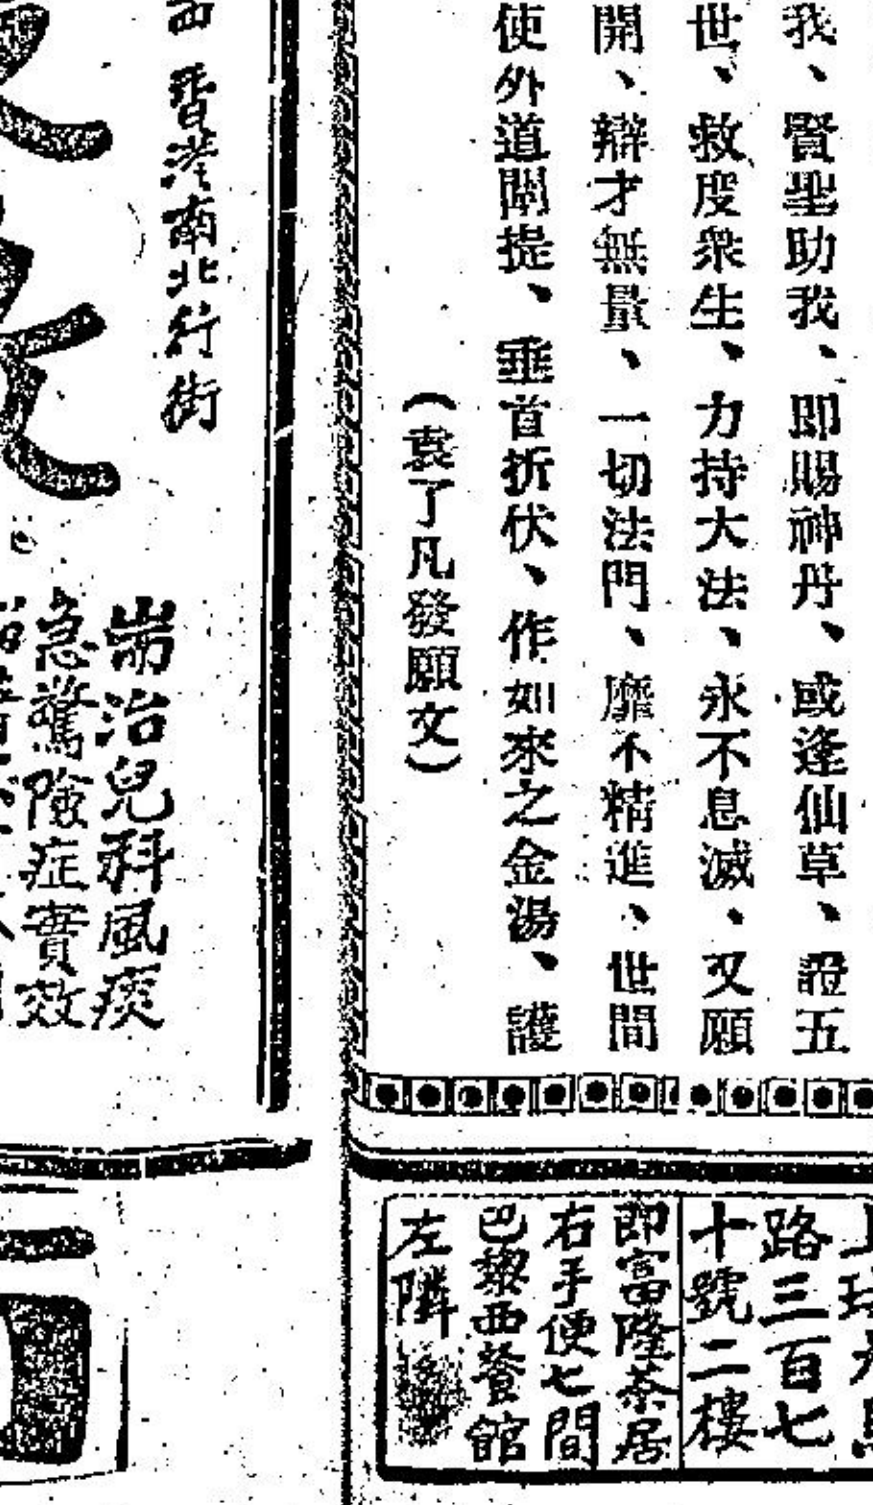 我、賢聖助我、即賜神丹、或逢仙草、證五
世、救度衆生、力持大法、永不息滅、又願
開、辯才無量、一切法門、靡不精進、世間
使外道闡提、垂首折伏、作如來之金湯、護
（袁了凡發願文）
香港南北行街
耑治兒科風痰
急驚險症實效
路三百七
十號二樓
即富隆茶居
右手便七間
巴黎西餐館
左隣